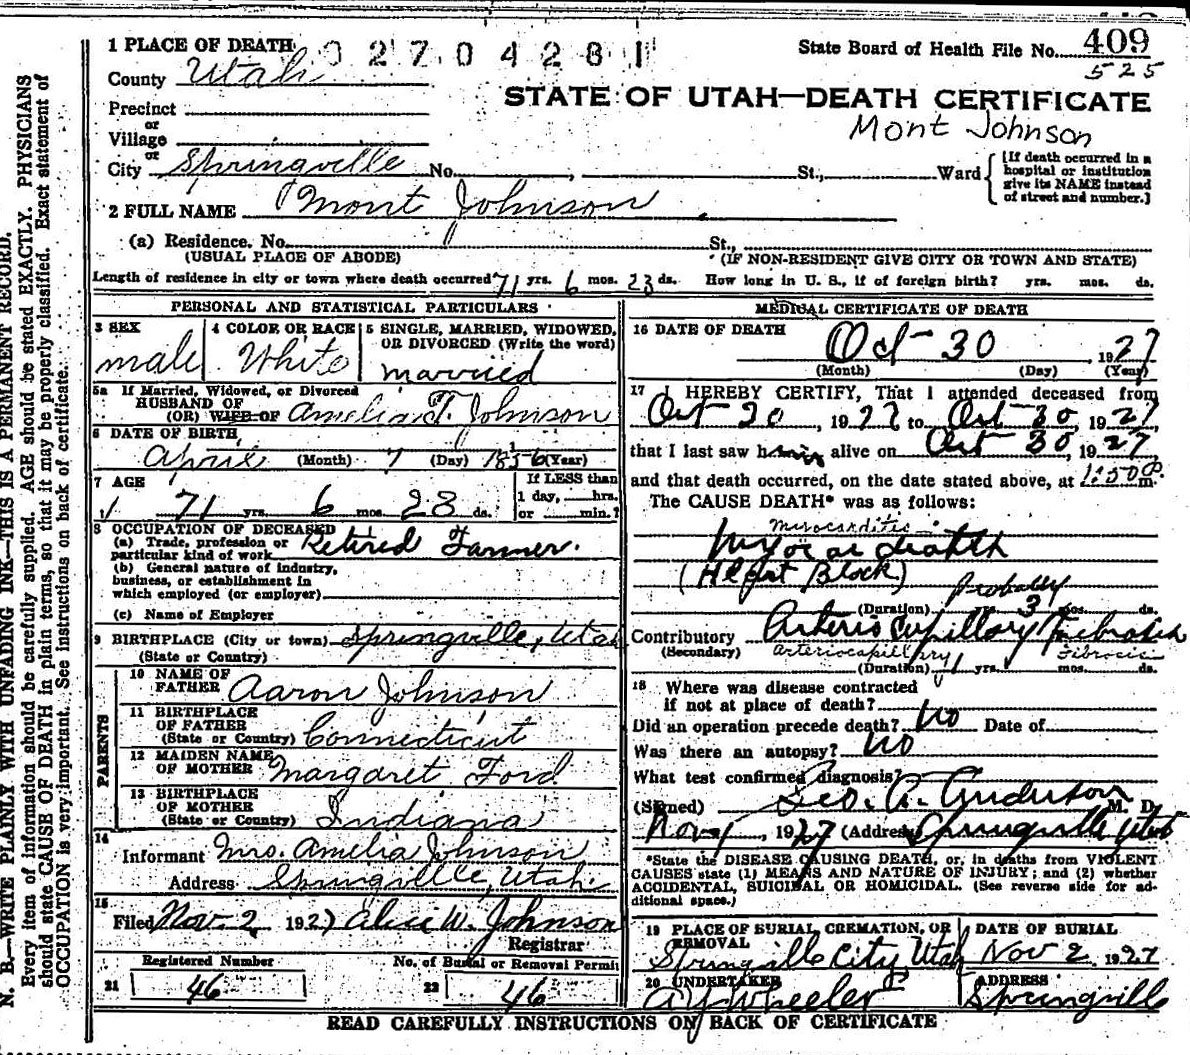 1 PLACE OF DEATH 0270428 1
State Board of Health File No. 409
525
County Utah
STATE OF UTAH—DEATH CERTIFICATE
Precinct
Mont Johnson
or
Village
or
City Springville No. , St., Ward
[If death occurred in a hospital or institution give its NAME instead of street and number.]
2 FULL NAME Mont Johnson
(a) Residence. No. St.,
(USUAL PLACE OF ABODE) (IF NON-RESIDENT GIVE CITY OR TOWN AND STATE)
Length of residence in city or town where death occurred 71 yrs. 6 mos. 23 ds. How long in U. S., if of foreign birth? yrs. mos. ds.
PERSONAL AND STATISTICAL PARTICULARS
3 SEX male
4 COLOR OR RACE White
5 SINGLE, MARRIED, WIDOWED, OR DIVORCED (Write the word) married
5a If Married, Widowed, or Divorced
HUSBAND OF
(OR) WIFE OF Amelia T. Johnson
6 DATE OF BIRTH
April (Month) 7 (Day) 1856 (Year)
7 AGE
71 yrs. 6 mos. 23 ds.
If LESS than
1 day, hrs.
or min.?
8 OCCUPATION OF DECEASED
(a) Trade, profession or
particular kind of work Retired Farmer.
(b) General nature of industry,
business, or establishment in
which employed (or employer)
(c) Name of Employer
9 BIRTHPLACE (City or town) Springville, Utah
(State or Country)
PARENTS
10 NAME OF
FATHER Aaron Johnson
11 BIRTHPLACE
OF FATHER
(State or Country) Connecticut
12 MAIDEN NAME
OF MOTHER Margaret Ford
13 BIRTHPLACE
OF MOTHER
(State or Country) Indiana
14
Informant Mrs. Amelia Johnson
Address Springville, Utah.
15
Filed Nov. 2 1927 Alice W. Johnson
Registrar
Registered Number No. of Burial or Removal Permit
21 46 22 46
MEDICAL CERTIFICATE OF DEATH
16 DATE OF DEATH
Oct 30, 1927
(Month) (Day) (Year)
17 I HEREBY CERTIFY, That I attended deceased from
Oct 20, 1927 to Oct 30, 1927,
that I last saw him alive on Oct 30, 1927
and that death occurred, on the date stated above, at 1:50 P m.
The CAUSE DEATH* was as follows:
myocarditis
(Heart Block)
Probably
(Duration) yrs. 3 mos. ds.
Contributory Arterio capillary Fibrosis
(Secondary) Arteriocapillary Fibrosis
(Duration) 1 yrs. mos. ds.
18 Where was disease contracted
if not at place of death?
Did an operation precede death? No Date of
Was there an autopsy? No
What test confirmed diagnosis?
(Signed) Geo. A. Anderson M. D.
Nov 1, 1927 (Address) Springville Utah
*State the DISEASE CAUSING DEATH, or, in deaths from VIOLENT
CAUSES state (1) MEANS AND NATURE OF INJURY; and (2) whether
ACCIDENTAL, SUICIDAL OR HOMICIDAL. (See reverse side for ad-
ditional space.)
19 PLACE OF BURIAL, CREMATION, OR
REMOVAL
Springville City Utah
DATE OF BURIAL
Nov 2 1927
20 UNDERTAKER
A Y Wheeler
ADDRESS
Springville
READ CAREFULLY INSTRUCTIONS ON BACK OF CERTIFICATE
N. B.—WRITE PLAINLY WITH UNFADING INK—THIS IS A PERMANENT RECORD.
Every item of information should be carefully supplied. AGE should be stated EXACTLY. PHYSICIANS
should state CAUSE OF DEATH in plain terms, so that it may be properly classified. Exact statement of
OCCUPATION is very important. See instructions on back of certificate.